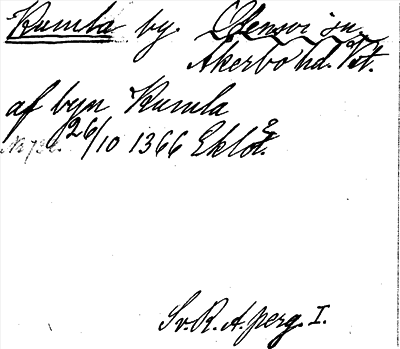 Kumla by. Odensvi sn.
Åkerbo hd. Vst.
af byn Kumla
26/10 1366
Sv. R. A. perg. I.